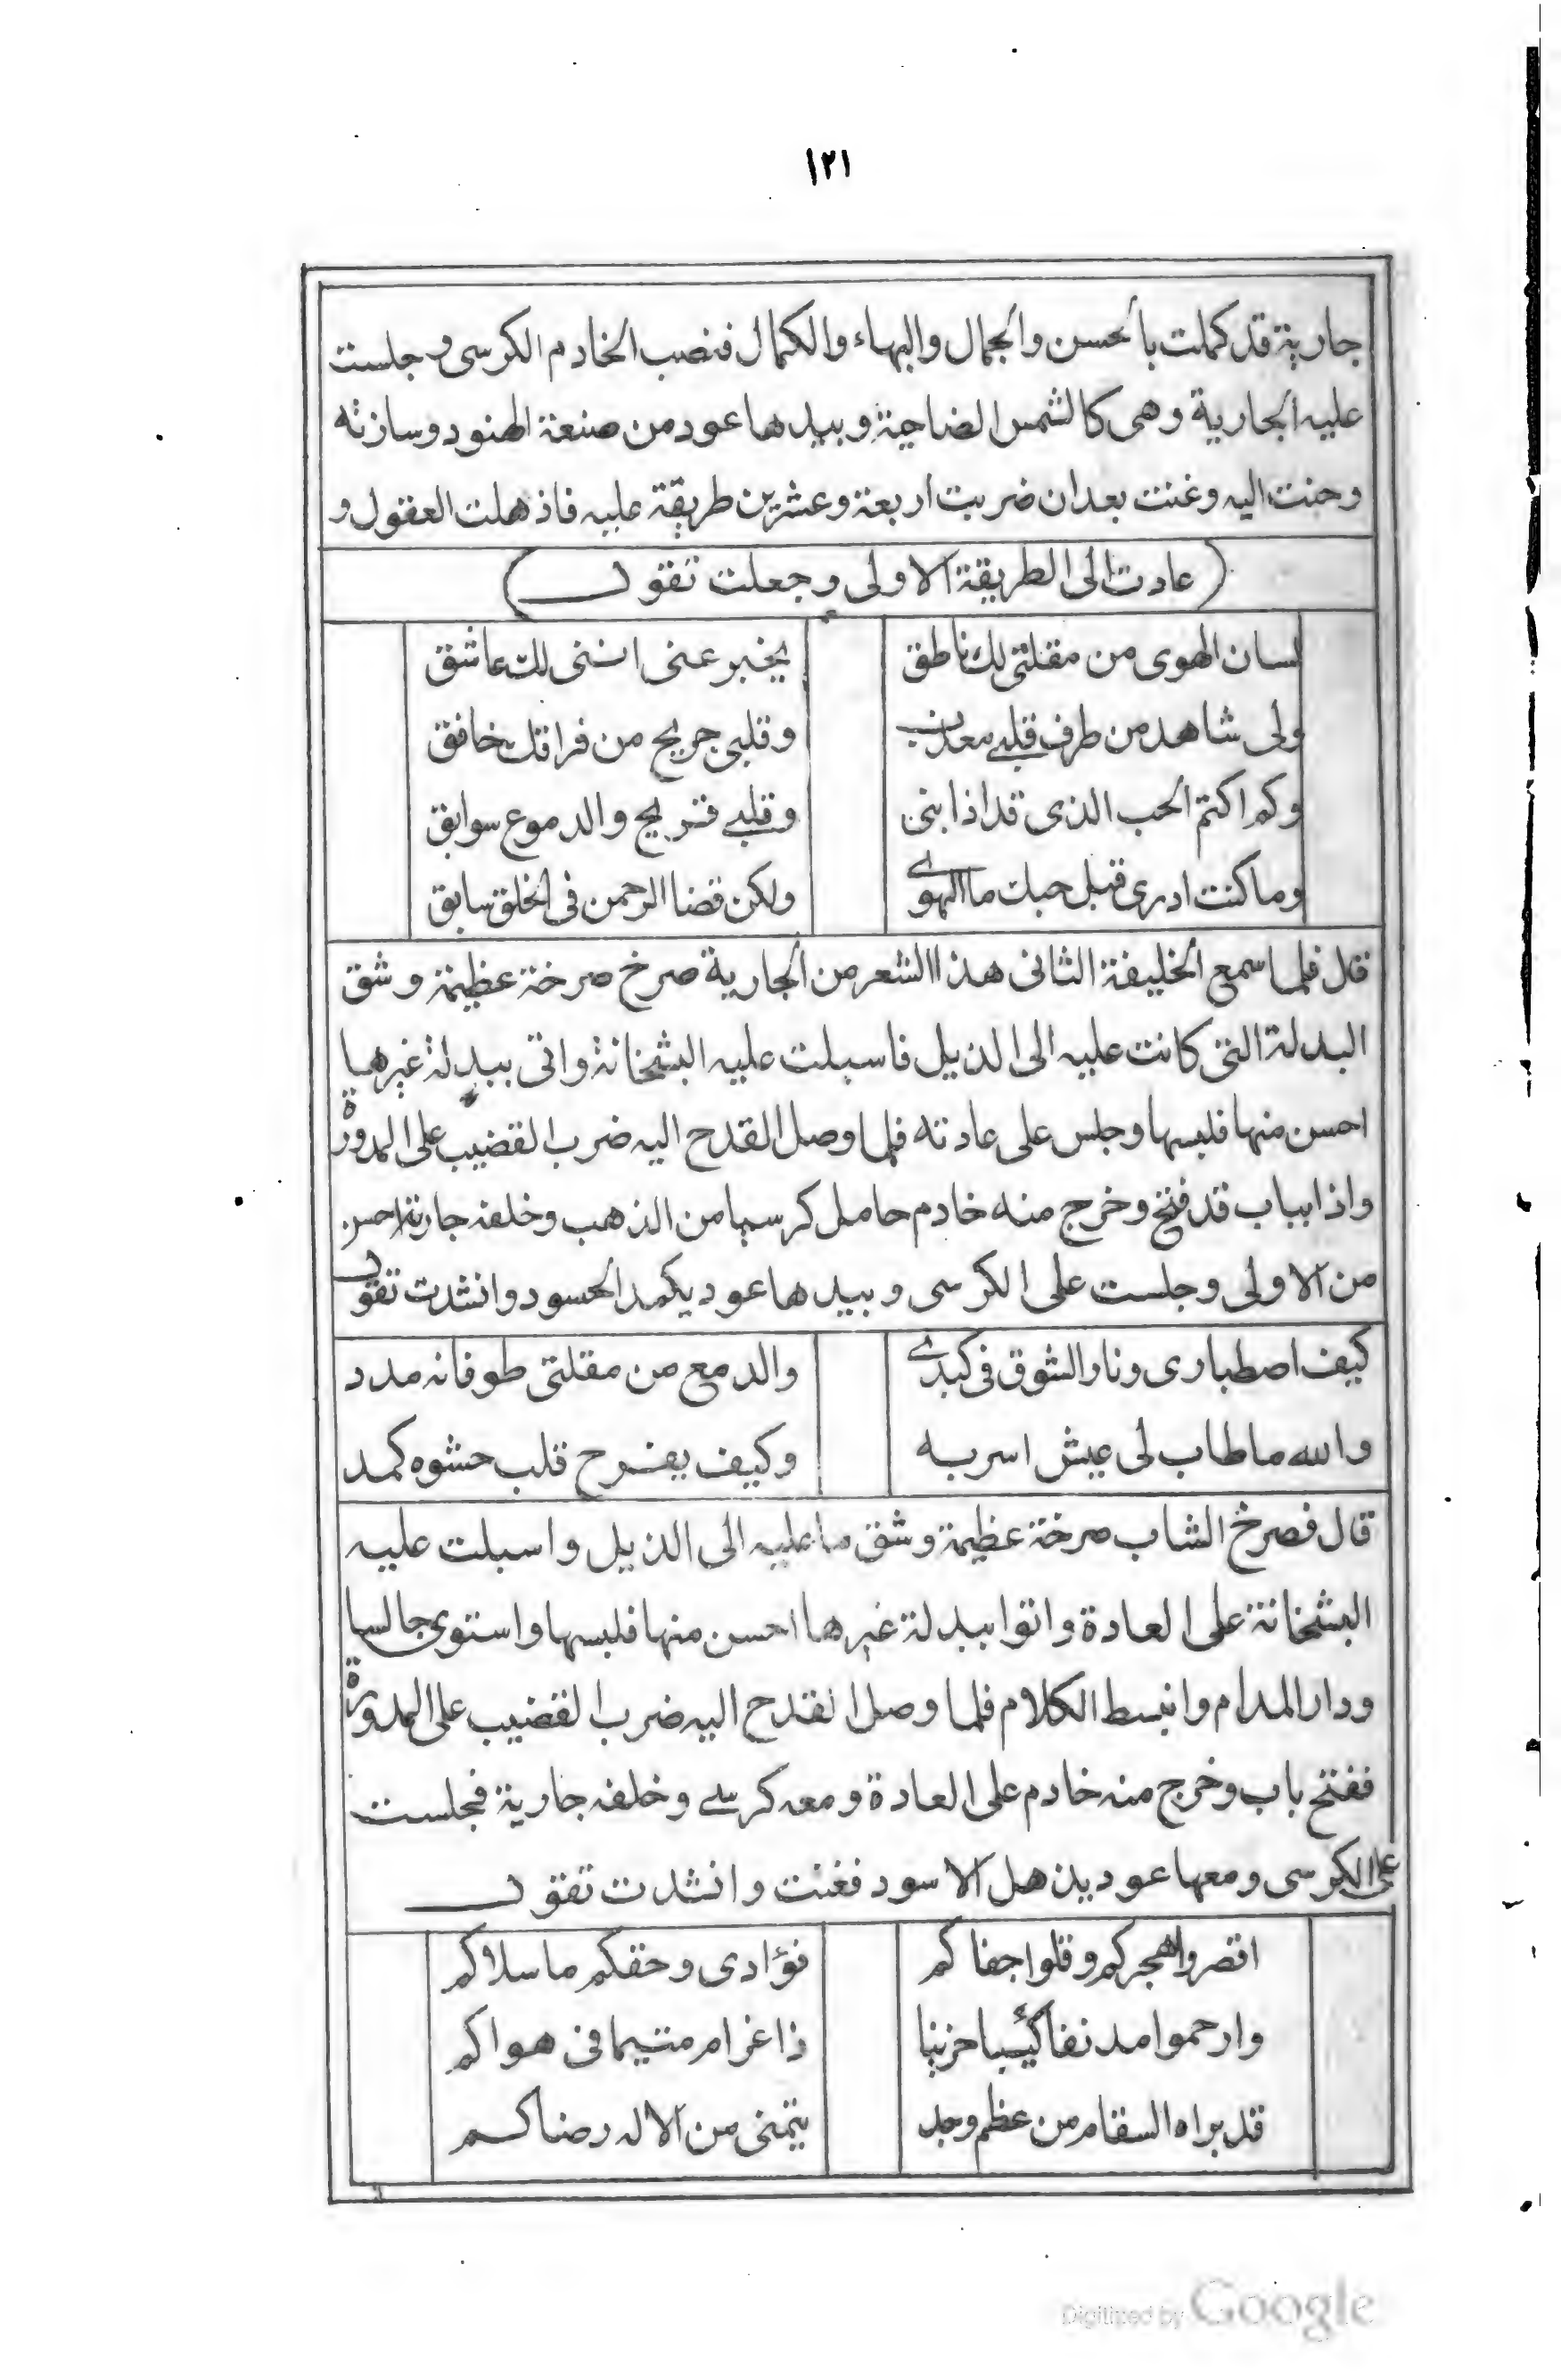 ١٢١
جارية قد كملت بالحسن والجمال والبهاء والكمال فنصب الخادم الكرسى وجلست
عليه الجارية وهى كالشمس الضاحية وبيدها عود من صنعة الهنود وسازته
وحنت اليه وغنت بعد ان ضربت اربعة وعشرين طريقة عليه فاذهلت العقول و
(عادت الى الطريقة الاولى وجعلت تقول)
لسان الهوى من مقلتى لك ناطق يخبر عنى اننى لك عاشق
ولى شاهد من طرف قلبى معذب وقلبى جريح من فراقك خافق
وكم اكتم الحب الذى قد اذابنى وقلبى قريح والدموع سوابق
وما كنت ادرى قبل حبك ما الهوى ولكن قضا الرحمن فى الخلق سابق
قال فلما سمع الخليفة الثانى هذا الشعر من الجارية صرخ صرخة عظيمة وشق
البدلة التى كانت عليه الى الذيل فاسبلت عليه البشخانة واتى ببدلة غيرها
احسن منها فلبسها وجلس على عادته فلما وصل القدح اليه ضرب القضيب على المدورة
واذا بباب قد فتح وخرج منه خادم حامل كرسيا من الذهب وخلفه جارية احسن
من الاولى وجلست على الكرسى وبيدها عود يكمد الحسود وانشدت تقول
كيف اصطبارى ونار الشوق فى كبدى والدمع من مقلتى طوفانه مدد
والله ما طاب لى عيش اسر به وكيف يفرح قلب حشوه كمد
قال فصرخ الشاب صرخة عظيمة وشق ما عليه الى الذيل واسبلت عليه
البشخانة على العادة واتوا ببدلة غيرها احسن منها فلبسها واستوى جالسا
ودار المدام وانبسط الكلام فلما وصل القدح اليه ضرب القضيب على المدورة
ففتح باب وخرج منه خادم على العادة ومعه كرسى وخلفه جارية فجلست
على الكرسى ومعها عود يذهل الاسود فغنت وانشدت تقول
اقصروا هجركم وقلوا جفاكم فؤادى وحقكم ما سلاكم
وارحموا مدنفا كئيبا حزينا ذا غرام متيما فى هواكم
قد براه السقام من عظم وجد يتمنى من الاله رضاكم
Digitized by Google